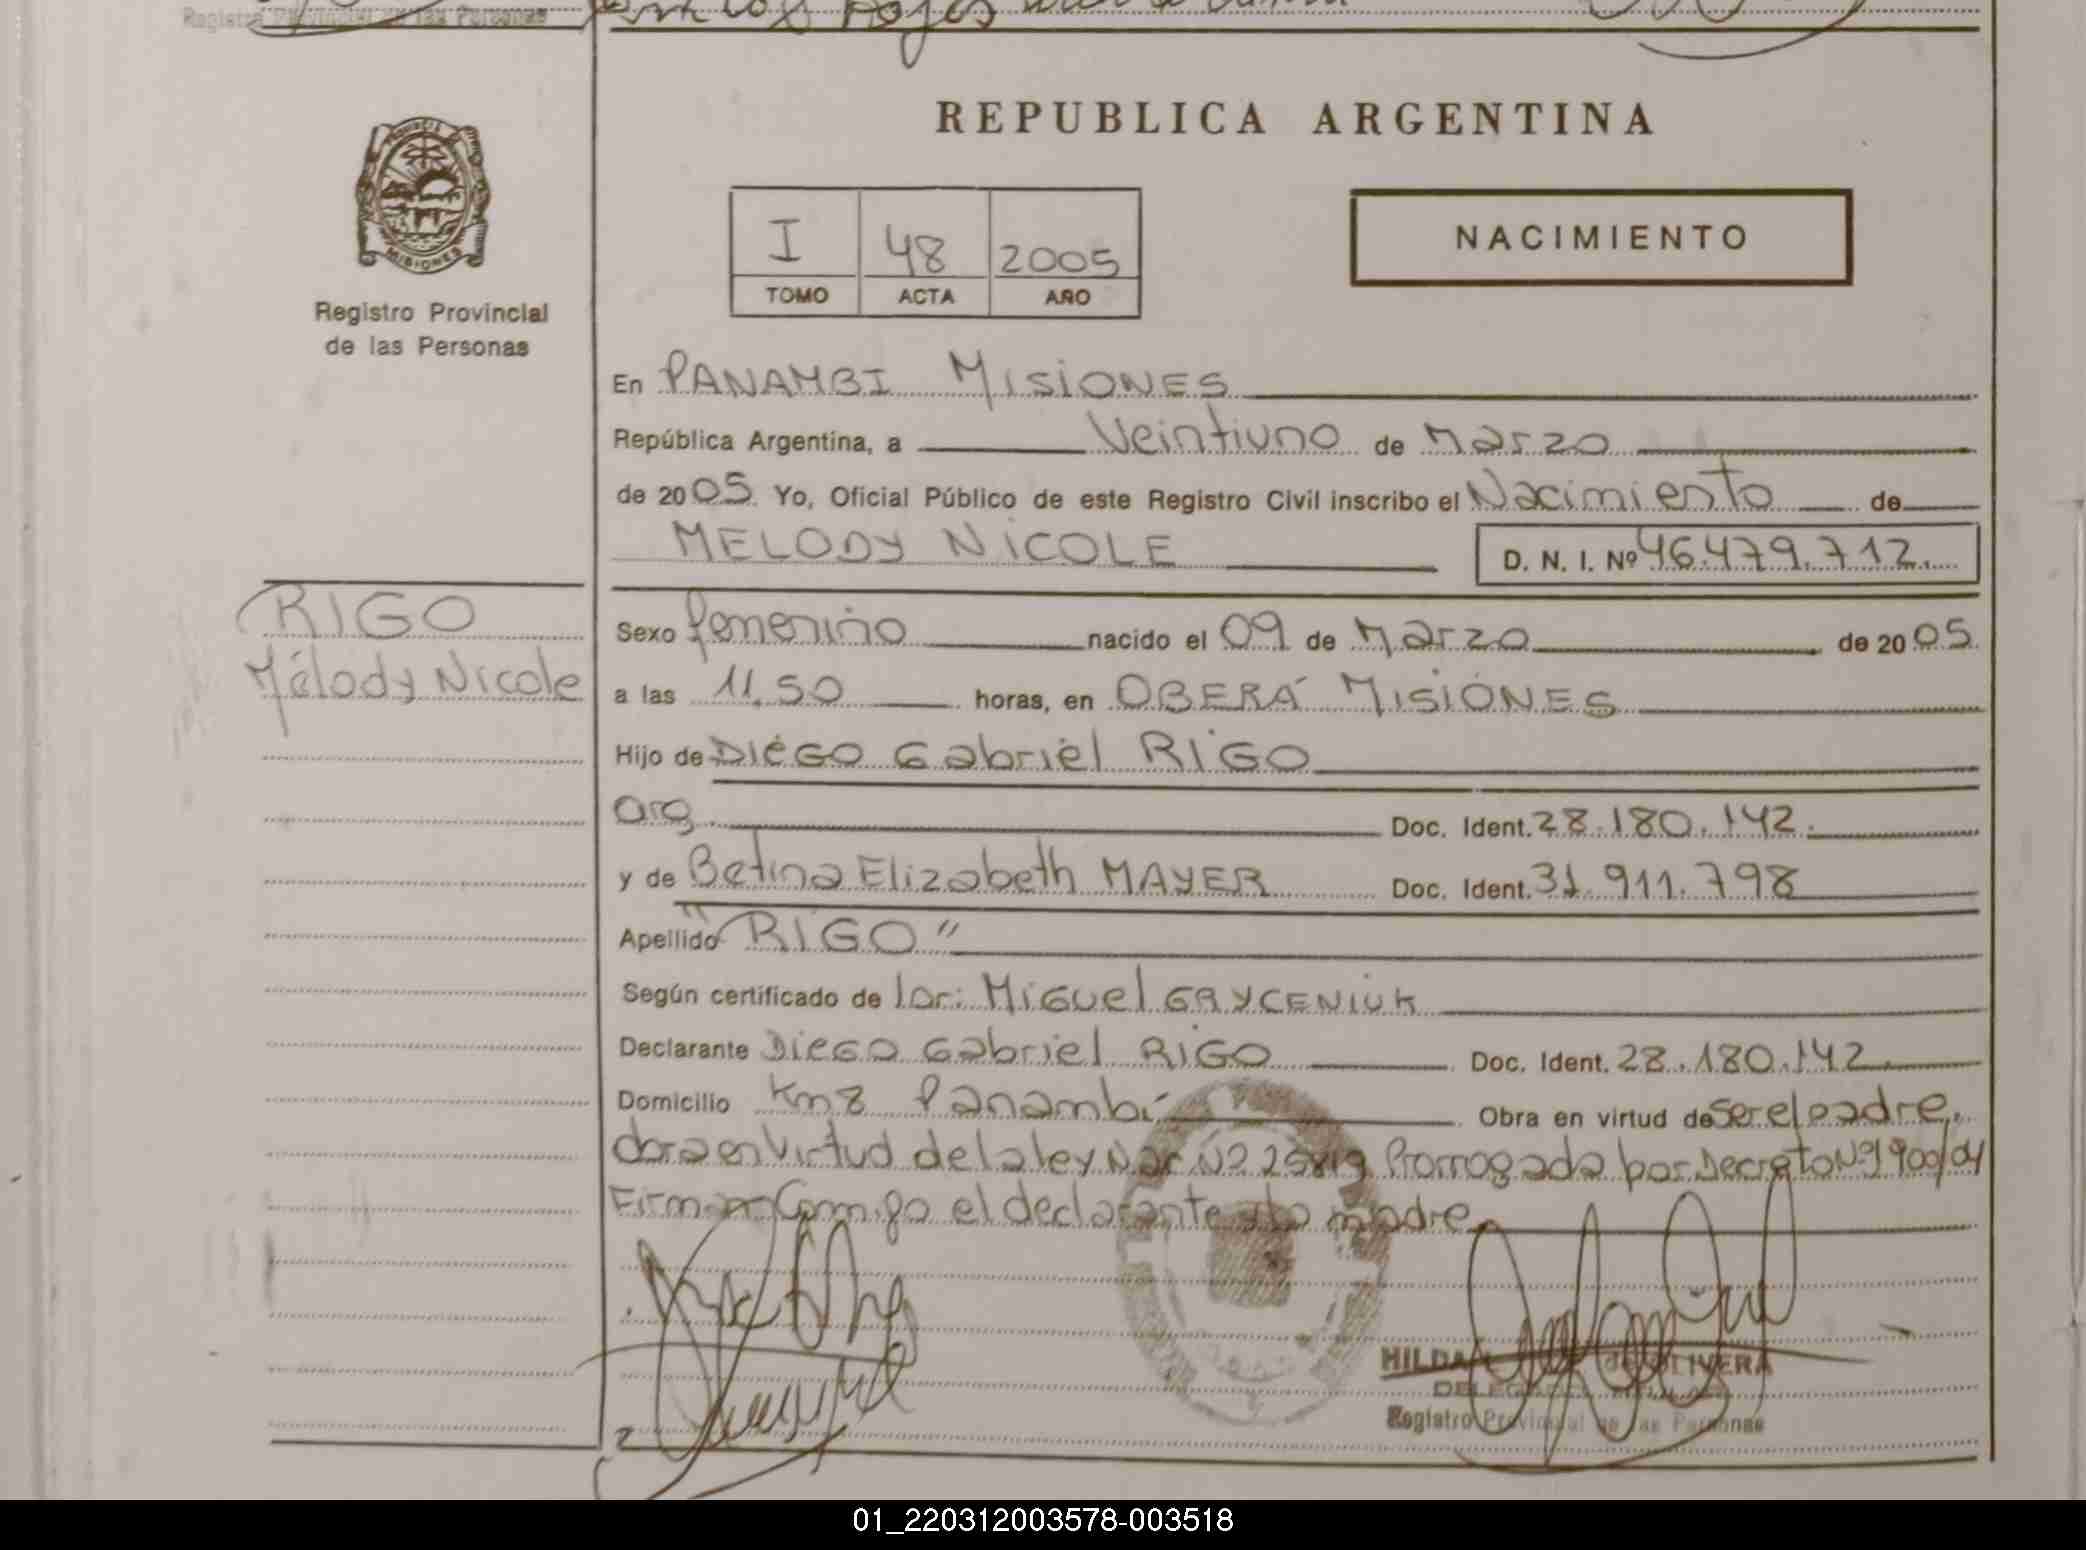 Registro Provincial de las Personas
REPUBLICA ARGENTINA
PROVINCIA
MISIONES
Registro Provincial
de las Personas
I 48 2005
TOMO ACTA AÑO
NACIMIENTO
En PANAMBI MISIONES
República Argentina, a Veintiuno de Marzo
de 2005. Yo, Oficial Público de este Registro Civil inscribo el Nacimiento de
MELODY NICOLE D. N. I. Nº 46.479.712.
RIGO
Mélody Nicole
Sexo femenino nacido el 09 de Marzo de 2005.
a las 11.50 horas, en OBERÁ MISIONES
Hijo de DIEGO Gabriel RIGO
arg. Doc. Ident. 28.180.142.
y de Betina Elizabeth MAYER Doc. Ident. 31.911.798
Apellido "RIGO"
Según certificado de Miguel GRYCENIUK
Declarante DIEGO Gabriel RIGO Doc. Ident. 28.180.142.
Domicilio Km 8 Panambí Obra en virtud de ser el padre.
en Virtud de la ley Nac Nº 25819 Prorrogada por Decreto Nº 1900/04
Firman Conmigo el declarante y la madre
HILDA de OLIVERA
DELEGADA TITULAR
Registro Provincial de las Personas
01_220312003578-003518